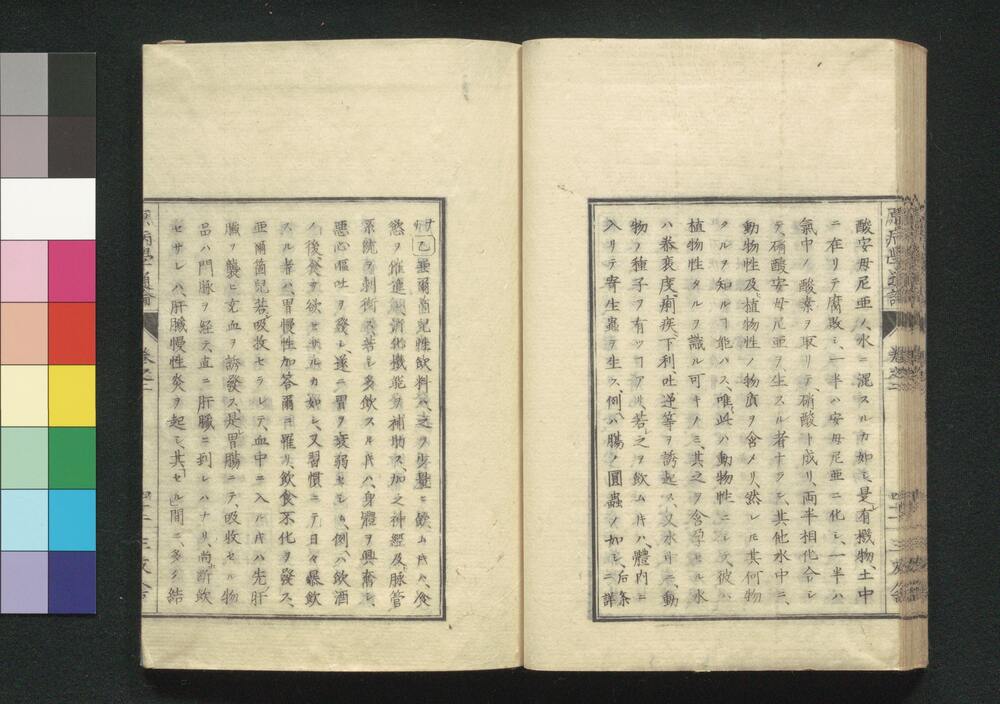 酸安母尼亜ノ水ニ混スルカ如シ、是有機物、土中
ニ在リテ腐敗シ、一半ハ安母尼亜ニ化シ、一半ハ
氣中ノ酸素ヲ取リテ、硝酸ト成リ、両半相化合シ
テ、硝酸安母尼亜ヲ生スル者ナラン、其他水中ニ、
動物性及植物性ノ物質ヲ含メリ、然レ𪜈其何物
タルヲ知ルヿ能ハス、唯此ハ動物性ニシテ、彼ハ
植物性タルヲ識ル可キノミ、其之ヲ含有セル水
ハ、虎列、痢疾、下利、吐逆等ヲ誘起ス、又水中ニ、動
物ノ種子ヲ有ツヿアリ、若之ヲ飲ム𪜈ハ、體内ニ
入リテ寄生蟲ヲ生ス、例ハ腸ノ圓蟲ノ如シ、后条ニ詳
ナリ
乙亜爾箇兒性飲料ハ、之ヲ少量ニ飲ム𪜈ハ、食
慾ヲ催進シ、消化機能ヲ補助ス、加之神經及脉管
系統ヲ刺衝ス、若シ多飲スル𪜈ハ、身體ヲ興奮シ、
悪心嘔吐ヲ發シ、遂ニ胃ヲ衰弱セシム、例ハ飲酒
ノ後食ヲ欲セサルカ如シ、又習慣ニテ、日々暴飲
スル者ハ、胃慢性加答爾ニ罹リ、飲食不化ヲ發ス、
亜爾箇兒若吸收セラレテ、血中ニ入ル𪜈ハ先肝
臓ヲ襲ヒ充血ヲ誘發ス、是胃腸ニテ、吸收セル物
品ハ門脉ヲ経テ、直ニ肝臓ニ到レハナリ、尚斷飲
セサレハ、肝臓慢性炎ヲ起シ、其セル間ニ、多ク結
原病學通論 巻之二 四十二 三友舎